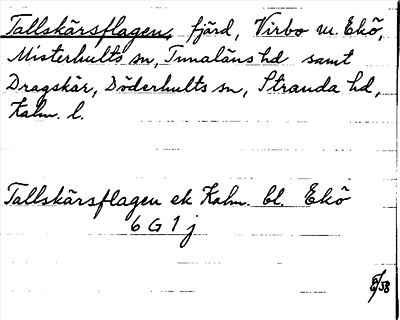 Tallskärsflagen, fjärd, Virbo m. Ekö,
Misterhults sn, Tunaläns hd samt
Dragskär, Döderhults sn, Stranda hd,
Kalm. l.
Tallskärsflagen ek Kalm. bl. Ekö
6 G 1 j